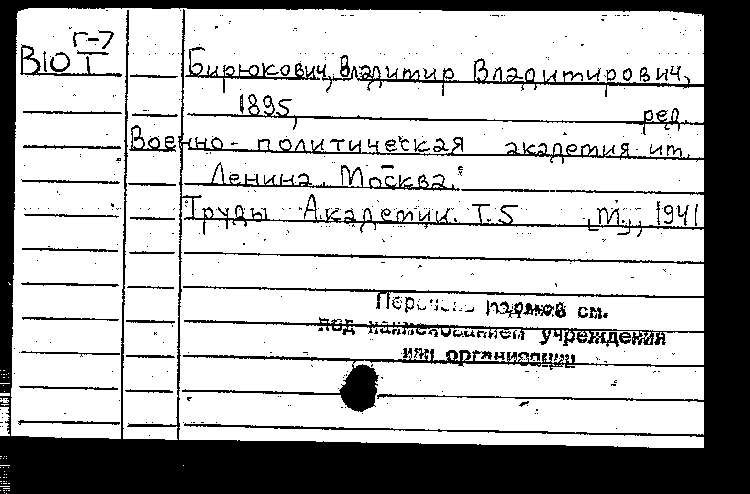 Г-7
В10 Т Бирюкович, Владимир Владимирович,
1895, ред.
Военно-политическая академия им.
Ленина. Москва.
Труды Академии. Т.5 [М], 1941
Перечень шрмов см.
под наименованием учреждения
или организации